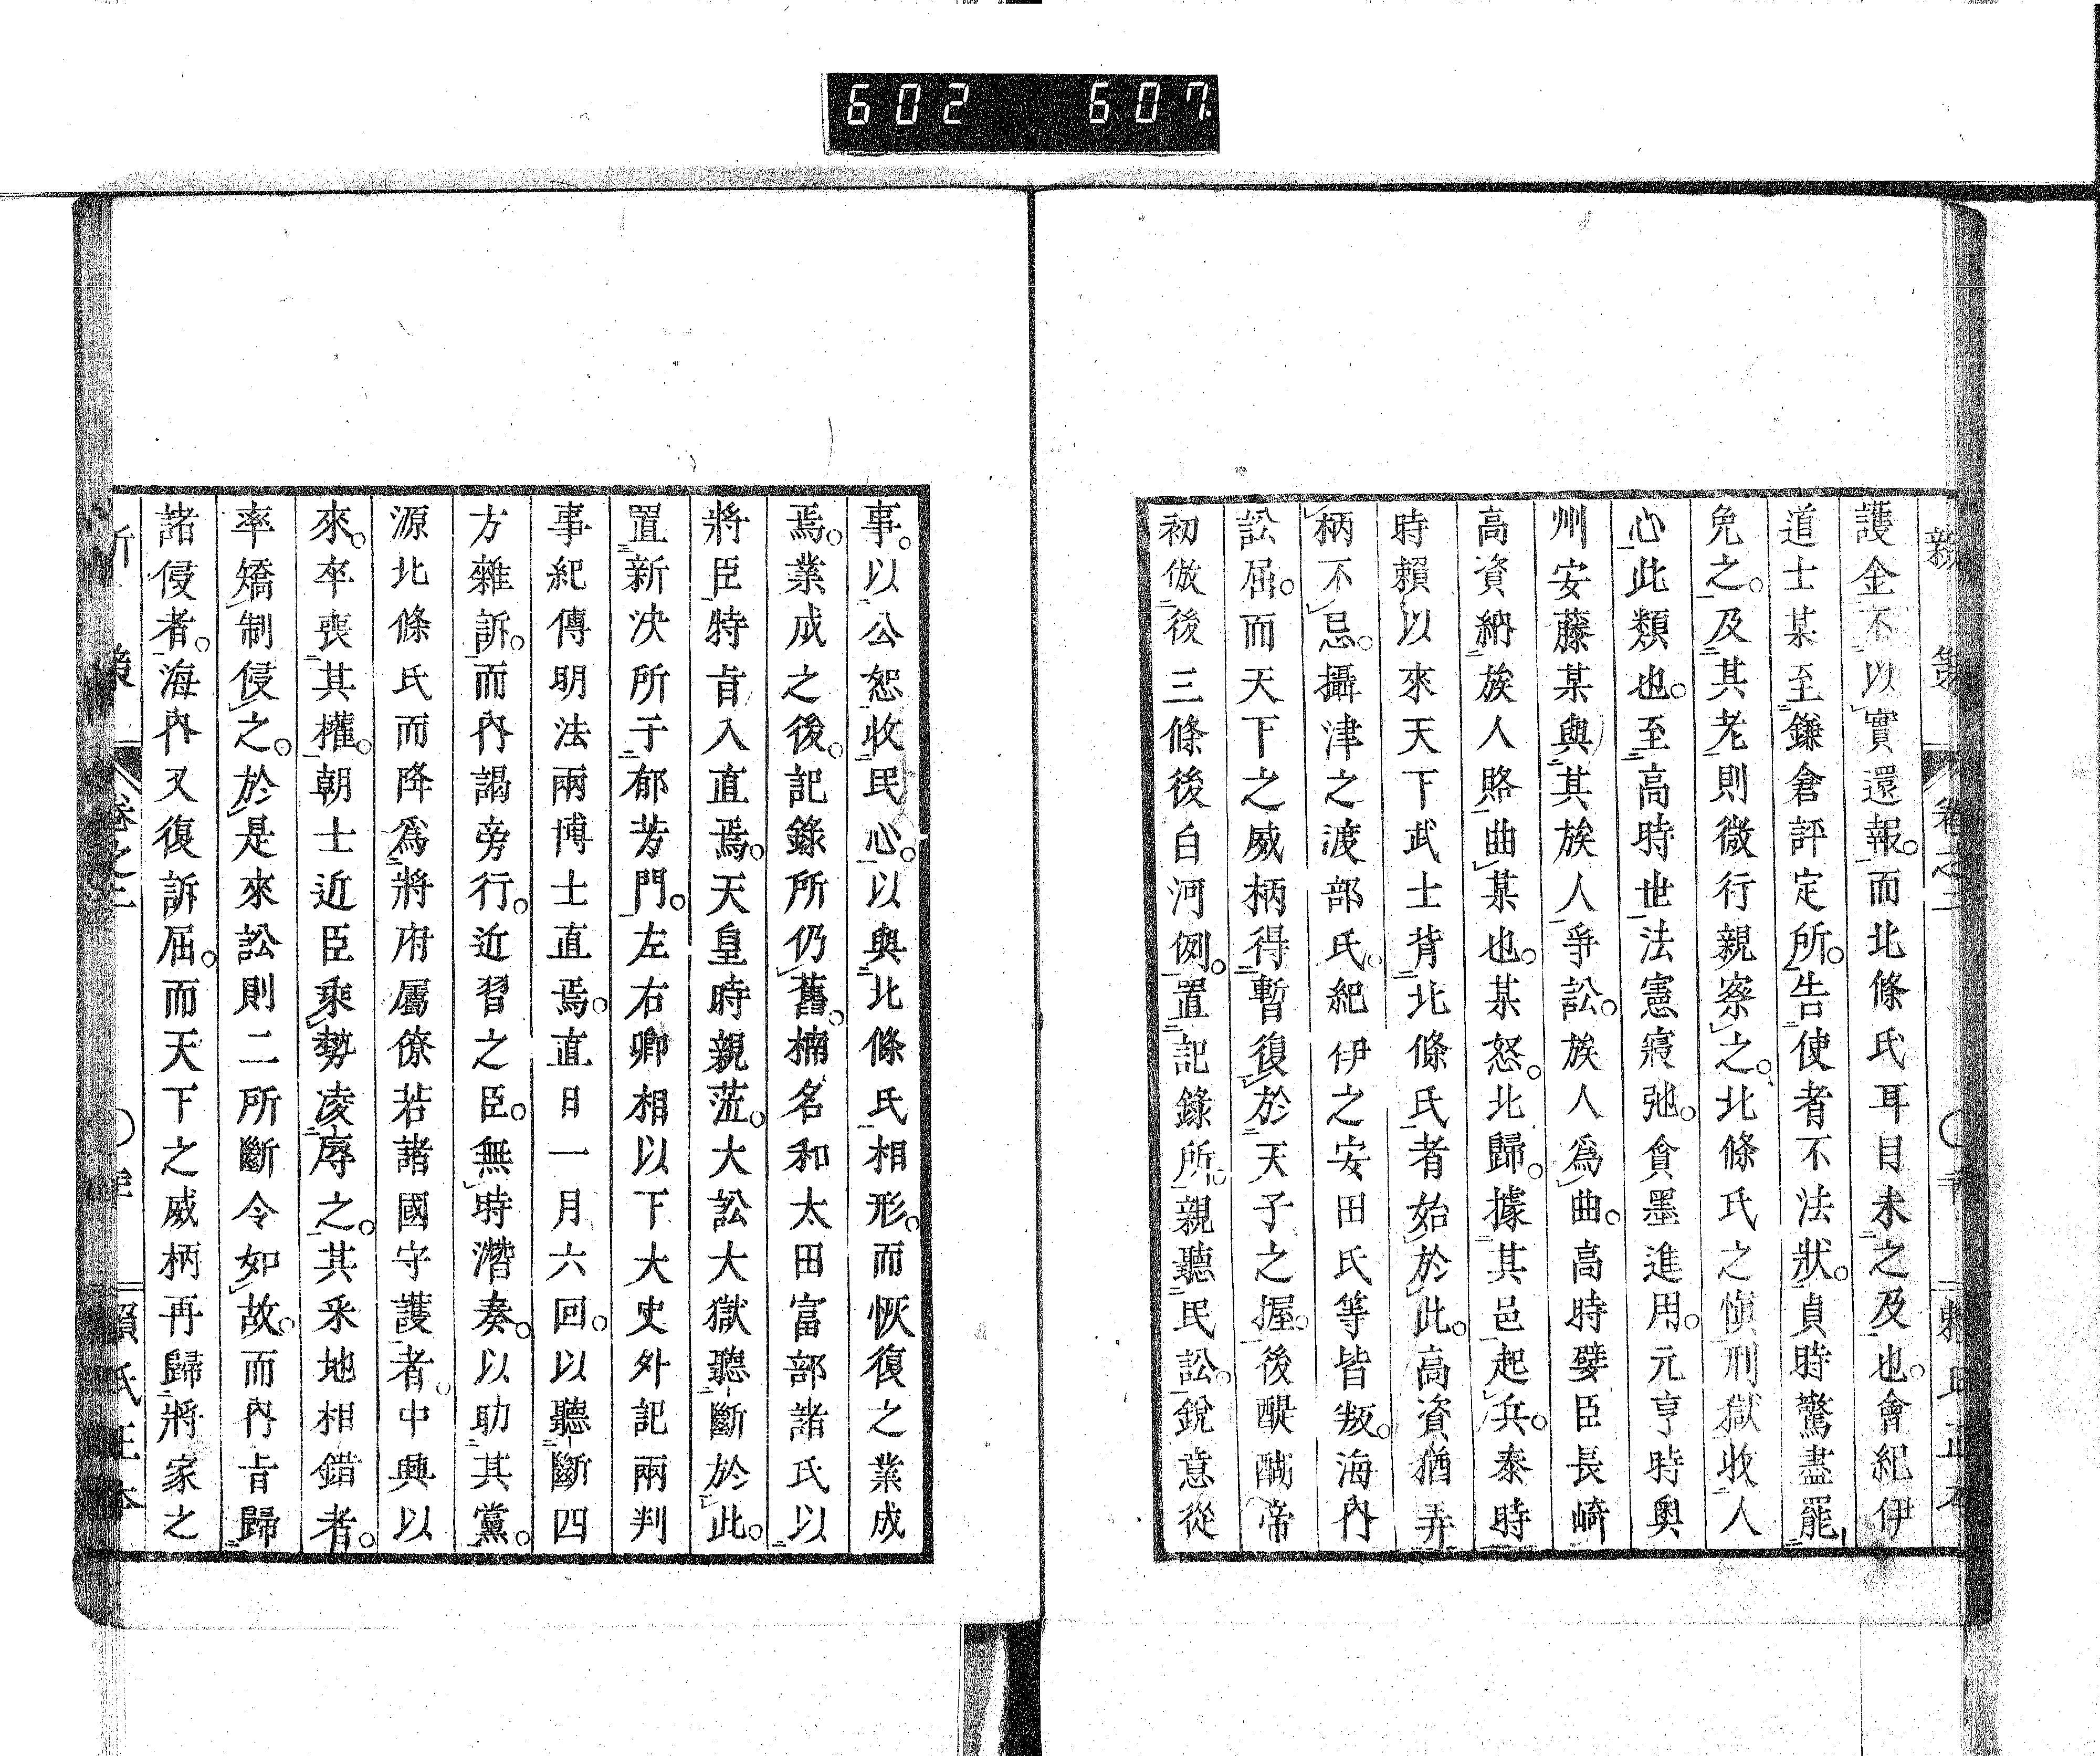 602 607
新策 卷之二 賴氏正本
護金不以實還報。而北條氏耳目未之及也。會紀伊
道士某至鎌倉評定所。告使者不法狀。貞時驚盡罷
免之。及其老則微行親察之。北條氏之愼刑獄收人
心此類也。至高時世法憲寢弛。貪墨進用。元亨時奧
州安藤某與其族人爭訟。族人爲曲。高時嬖臣長崎
高資納族人賂曲某也。某怒。北歸。據其邑起兵。泰時
時賴以來天下武士背北條氏者始於此。高資猶弄
柄不忌。攝津之渡部氏。紀伊之安田氏等皆叛。海內
訟屈。而天下之威柄得暫復於天子之握。後醍醐帝
初倣後三條後白河例。置記錄所。親聽民訟。銳意從
事。以公恕收民心。以與北條氏相形。而恢復之業成
焉。業成之後。記錄所仍舊。楠名和太田富部諸氏以
將臣特旨入直焉。天皇時親莅。大訟大獄聽斷於此。
置新決所于郁芳門。左右卿相以下大史外記兩判
事紀傳明法兩博士直焉。直日一月六回。以聽斷四
方雜訴。而內謁旁行。近習之臣。無時潛奏。以助其黨。
源北條氏而降爲將府屬僚若諸國守護者。中興以
來。卒喪其權。朝士近臣乘勢凌辱之。其采地相錯者。
率矯制侵之。於是來訟則二所斷令如故。而內旨歸
諸侵者。海內又復訴屈。而天下之威柄再歸將家之
策 卷之二 賴氏正本